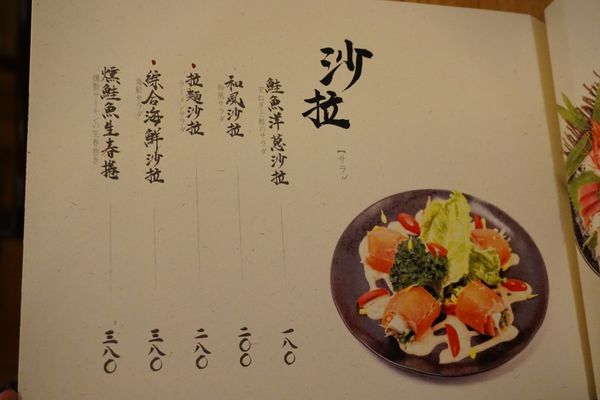 沙拉
【サラダ】
鮭魚洋蔥沙拉
玉ねぎと鮭のサラダ
一八〇
和風沙拉
和風サラダ
二〇〇
拉麵沙拉
ラーメンサラダ
二八〇
綜合海鮮沙拉
海鮮サラダ
三八〇
燻鮭魚生春捲
燻製サーモンの生春巻き
三八〇